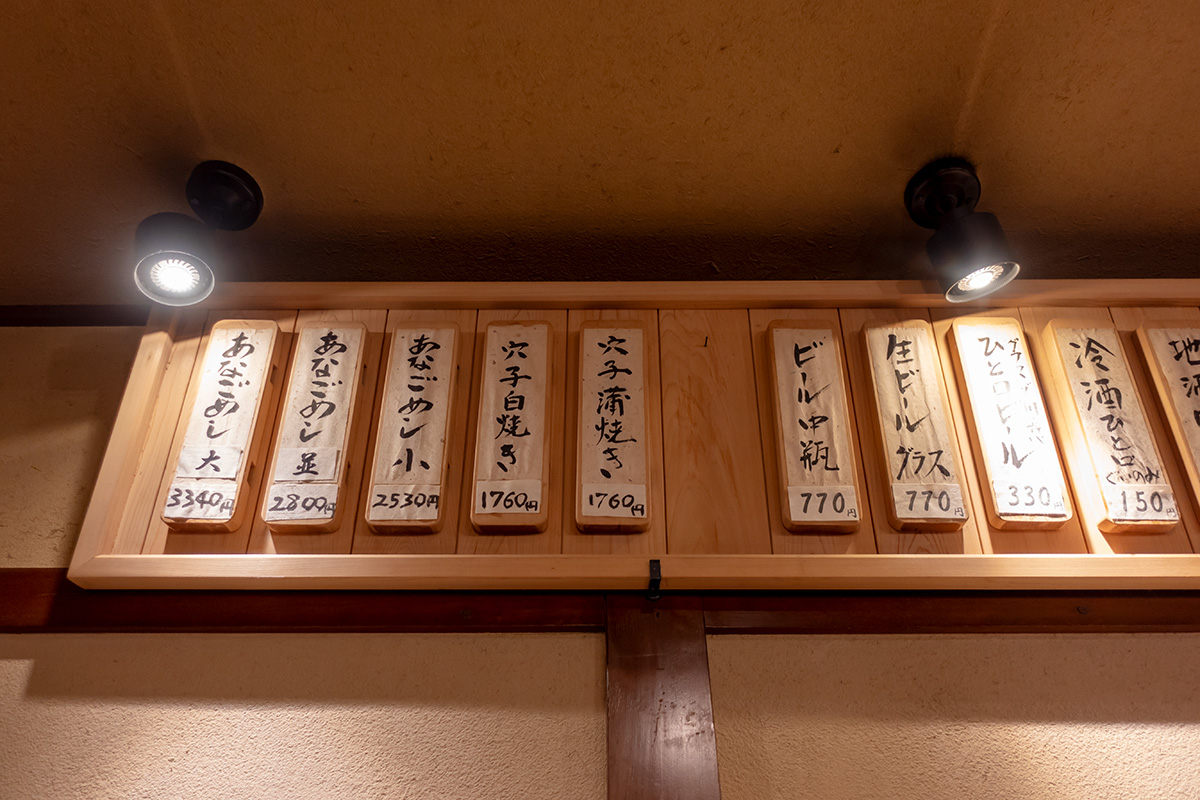 あなごめし 大
3340円
あなごめし 並
2800円
あなごめし 小
2530円
穴子白焼き
1760円
穴子蒲焼き
1760円
ビール中瓶
770円
生ビール グラス
770円
ひと口ビール
330円
冷酒ひと口
ぐいのみ
150円
地酒